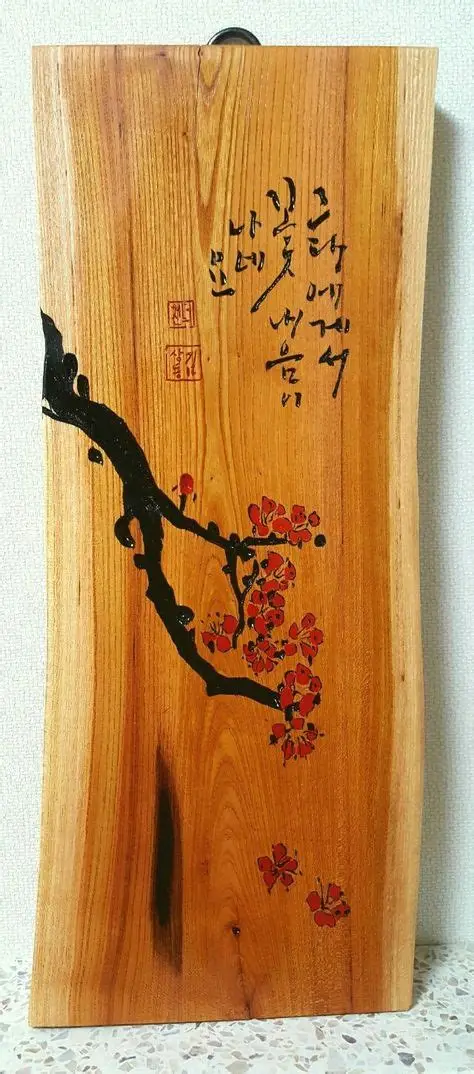 그대에게서
꽃내음이
나네
요